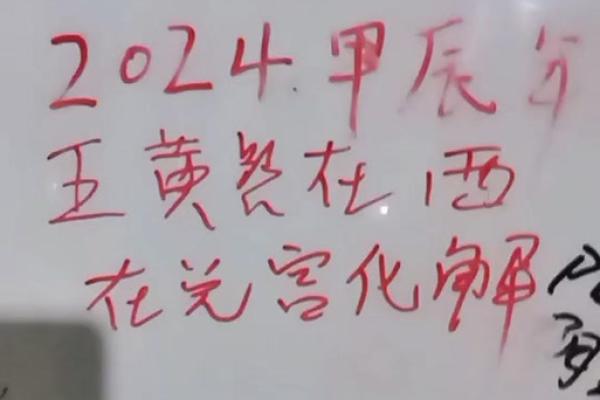 2024.甲辰年
五黄煞在西
在兑宫化解